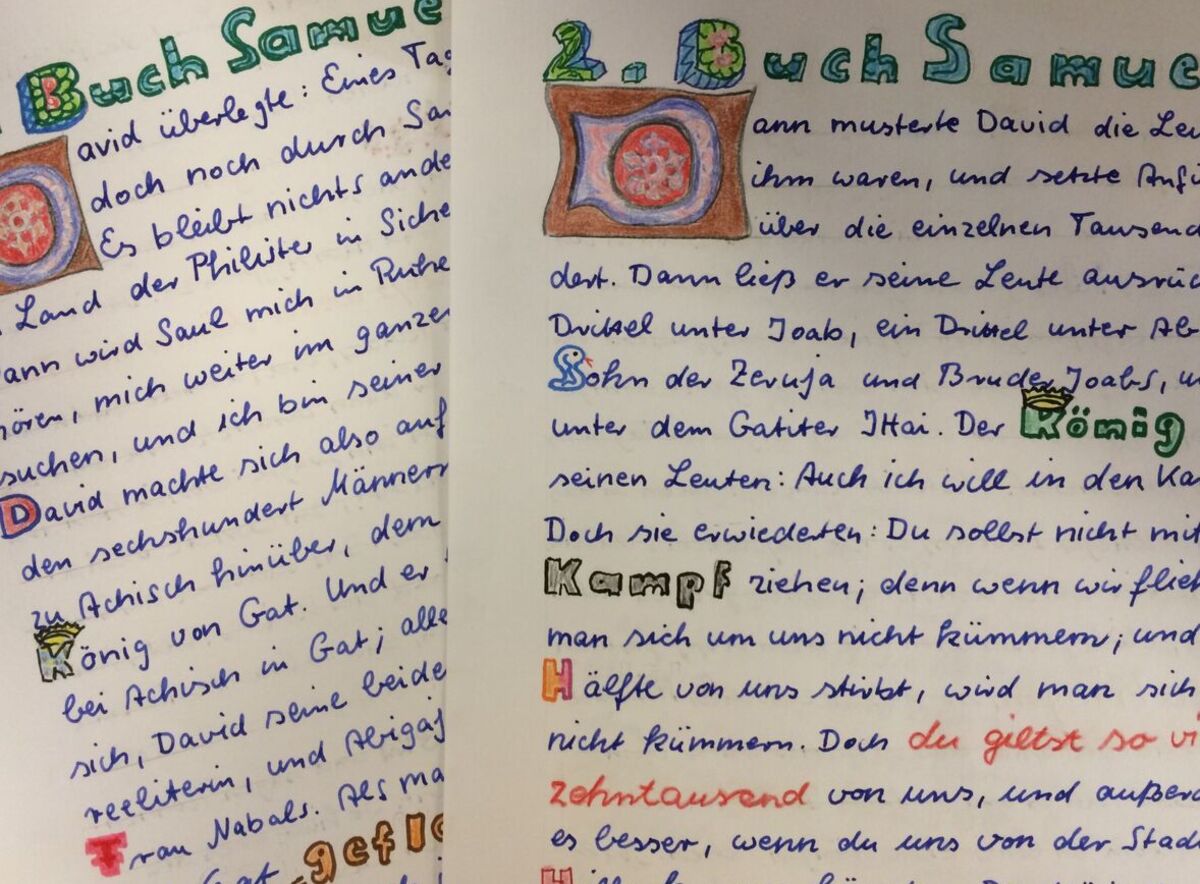 Buch Samue
David überlegte: Eines Tag
doch noch durch Sa
Es bleibt nichts ande
Land der Philister in Siche
ann wird Saul mich in Ruhe
hören, mich weiter im ganzen
suchen, und ich bin seiner
David machte sich also auf
den sechshundert Männern
zu Achisch hinüber, dem
König von Gat. Und er
bei Achisch in Gat; alle
sich, David seine beide
reeliterin, und Abigaj
Frau Nabals. Als ma
Gat gefl
2. Buch Samue
Dann musterte David die Leu
ihm waren, und setzte Anfü
über die einzelnen Tausend
dert. Dann ließ er seine Leute ausrüc
Drittel unter Joab, ein Drittel unter Ab
Sohn der Zeruja und Bruder Joabs, u
unter dem Gatiter Ittai. Der König
seinen Leuten: Auch ich will in den Ka
Doch sie erwiederten: Du sollst nicht mit
Kampf ziehen; denn wenn wir flieh
man sich um uns nicht kümmern; und
Hälfte von uns stirbt, wird man sich
nicht kümmern. Doch du giltst so vi
zehntausend von uns, und außerd
es besser, wenn du uns von der Stad